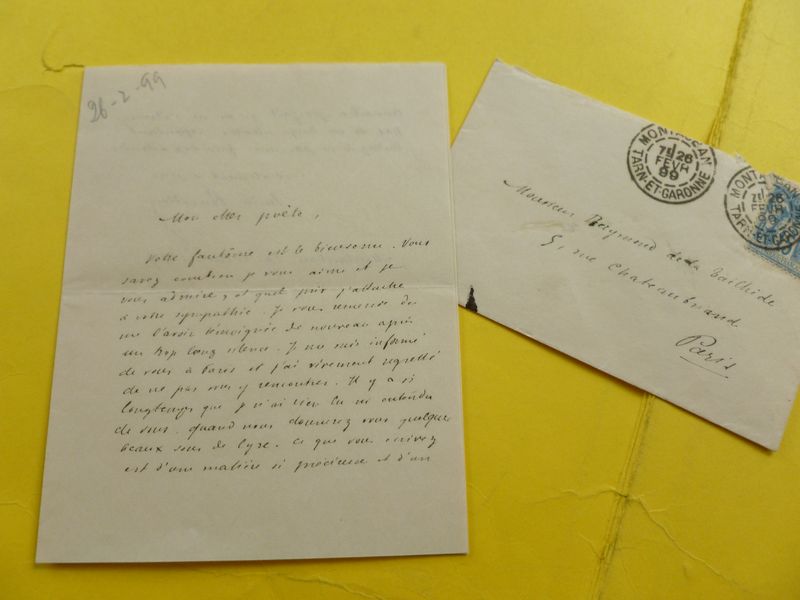 26-2-99
Mon cher poète,
Votre fantôme est le bienvenu. Vous
savez combien je vous aime et je
vous admire, et quel prix j'attache
à votre sympathie. Je vous remercie de
me l'avoir témoignée de nouveau après
un trop long silence. Je me suis informé
de vous à Paris et j'ai vivement regretté
de ne pas vous y rencontrer. Il y a si
longtemps que je n'ai rien lu ni entendu
de vous. Quand nous donnerez vous quelques
beaux sons de lyre. Ce que vous écrivez
est d'une matière si précieuse et d'un
MONTA
TARN-ET-GARONNE
7E 26
FEVR
99
MONTA
7E 26
FEVR
99
TARN-ET-GARONNE
Monsieur Raymond de la Tailhède
5, rue Chateaubriand
Paris